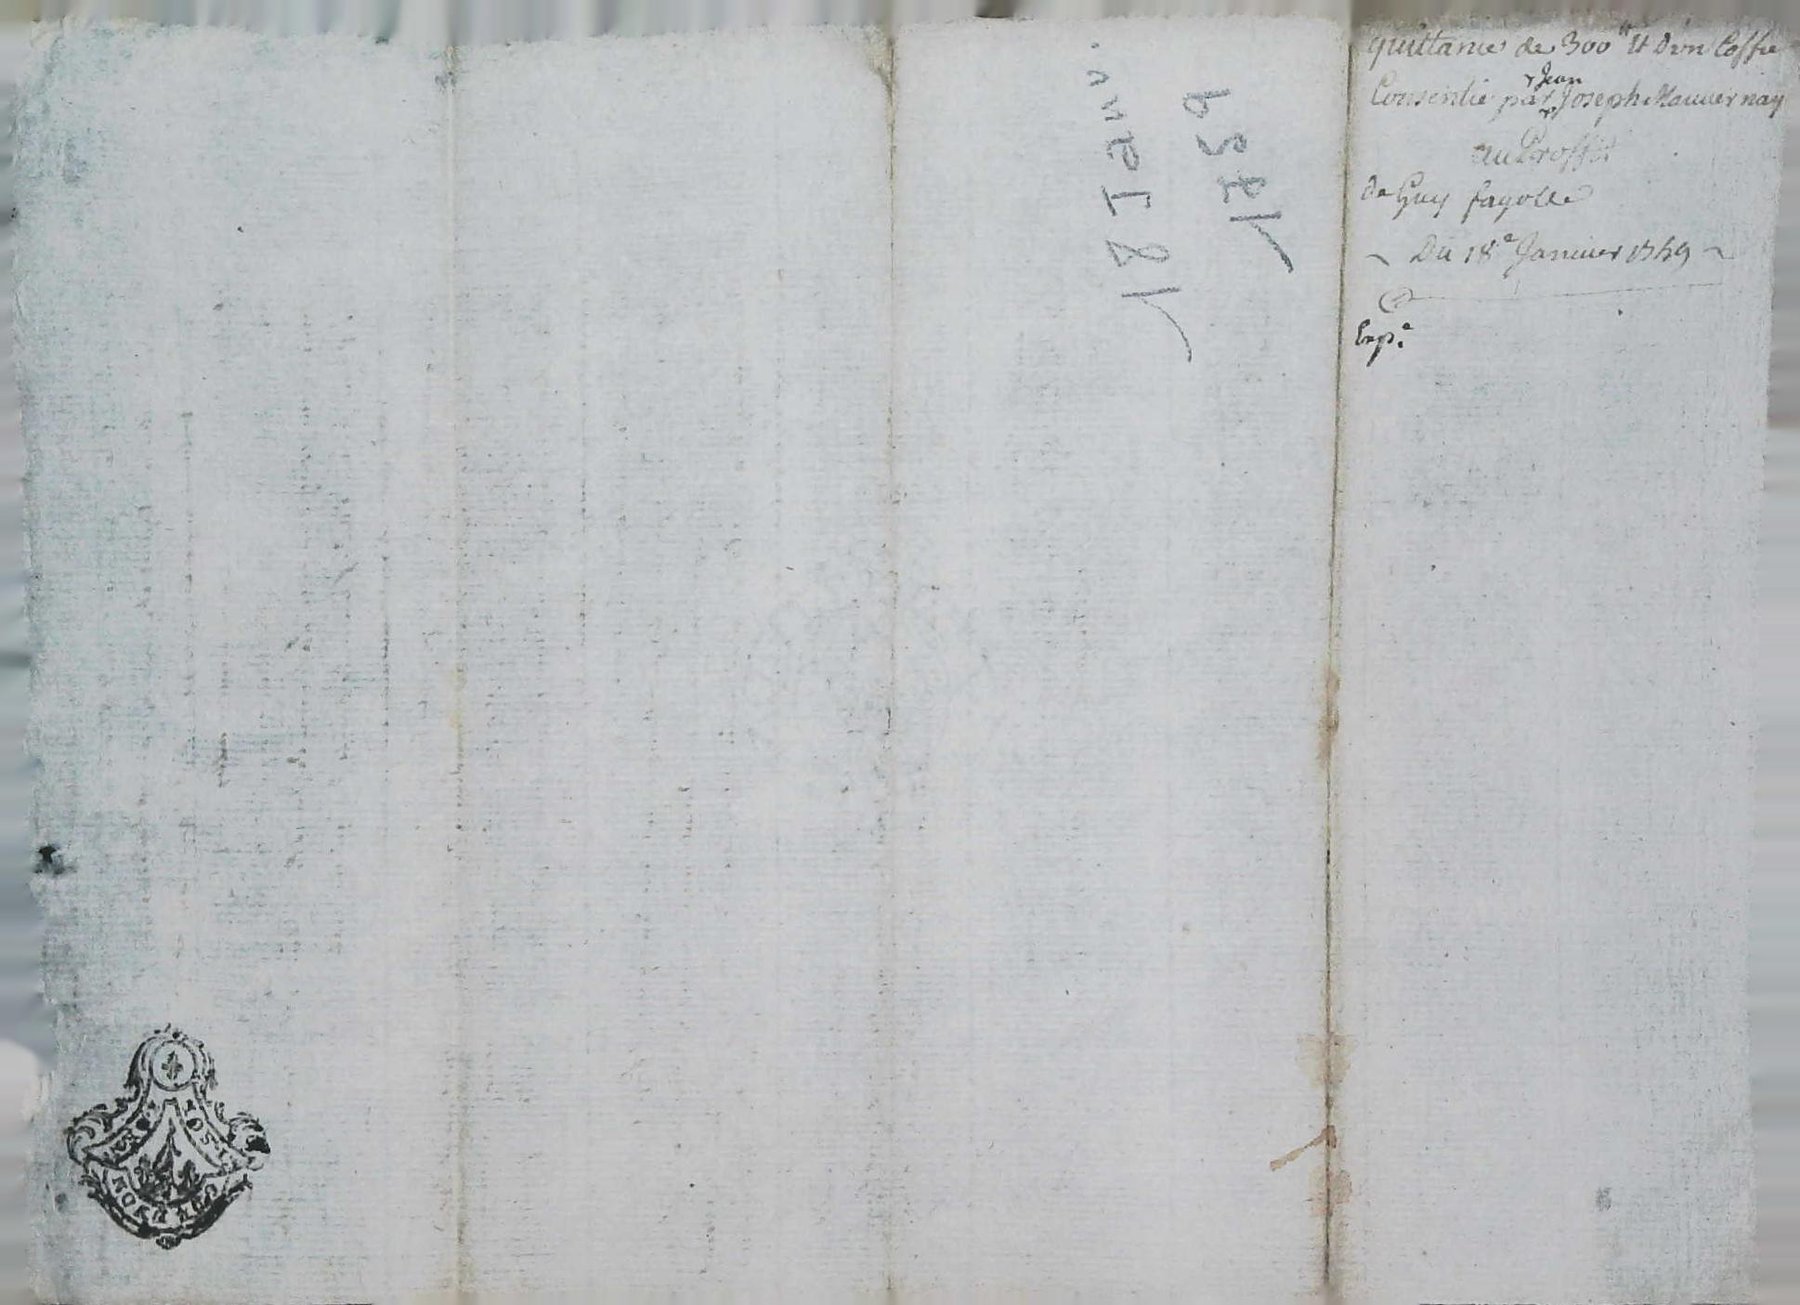 quittance de 300 lt et d'vn Coffre
Consentie par Jean Joseph Mauvernay
au Proffit
de Guy fayolle
Du 18e Janvier 1759
Exp.e
18 Janv.
1759